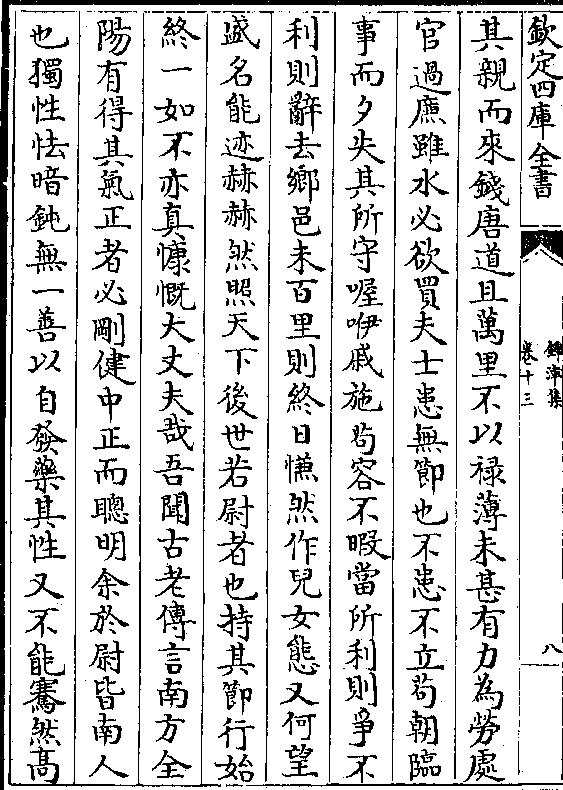 欽定四庫全書
鐔津集
卷十三
八
其親而來錢唐道且萬里不以祿薄未甚有力為勞處
官過廉雖水必欲買夫士患無節也不患不立茍朝臨
事而夕失其所守喔咿戚施茍容不暇當所利則爭不
利則辭去鄉邑未百里則終日慊然作兒女態又何望
盛名能迹赫赫然照天下後世若尉者也持其節行始
終一如不亦真慷慨大丈夫哉吾聞古老傳言南方全
陽有得其氣正者必剛健中正而聰明余於尉皆南人
也獨性怯暗鈍無一善以自發藥其性又不能騫然高